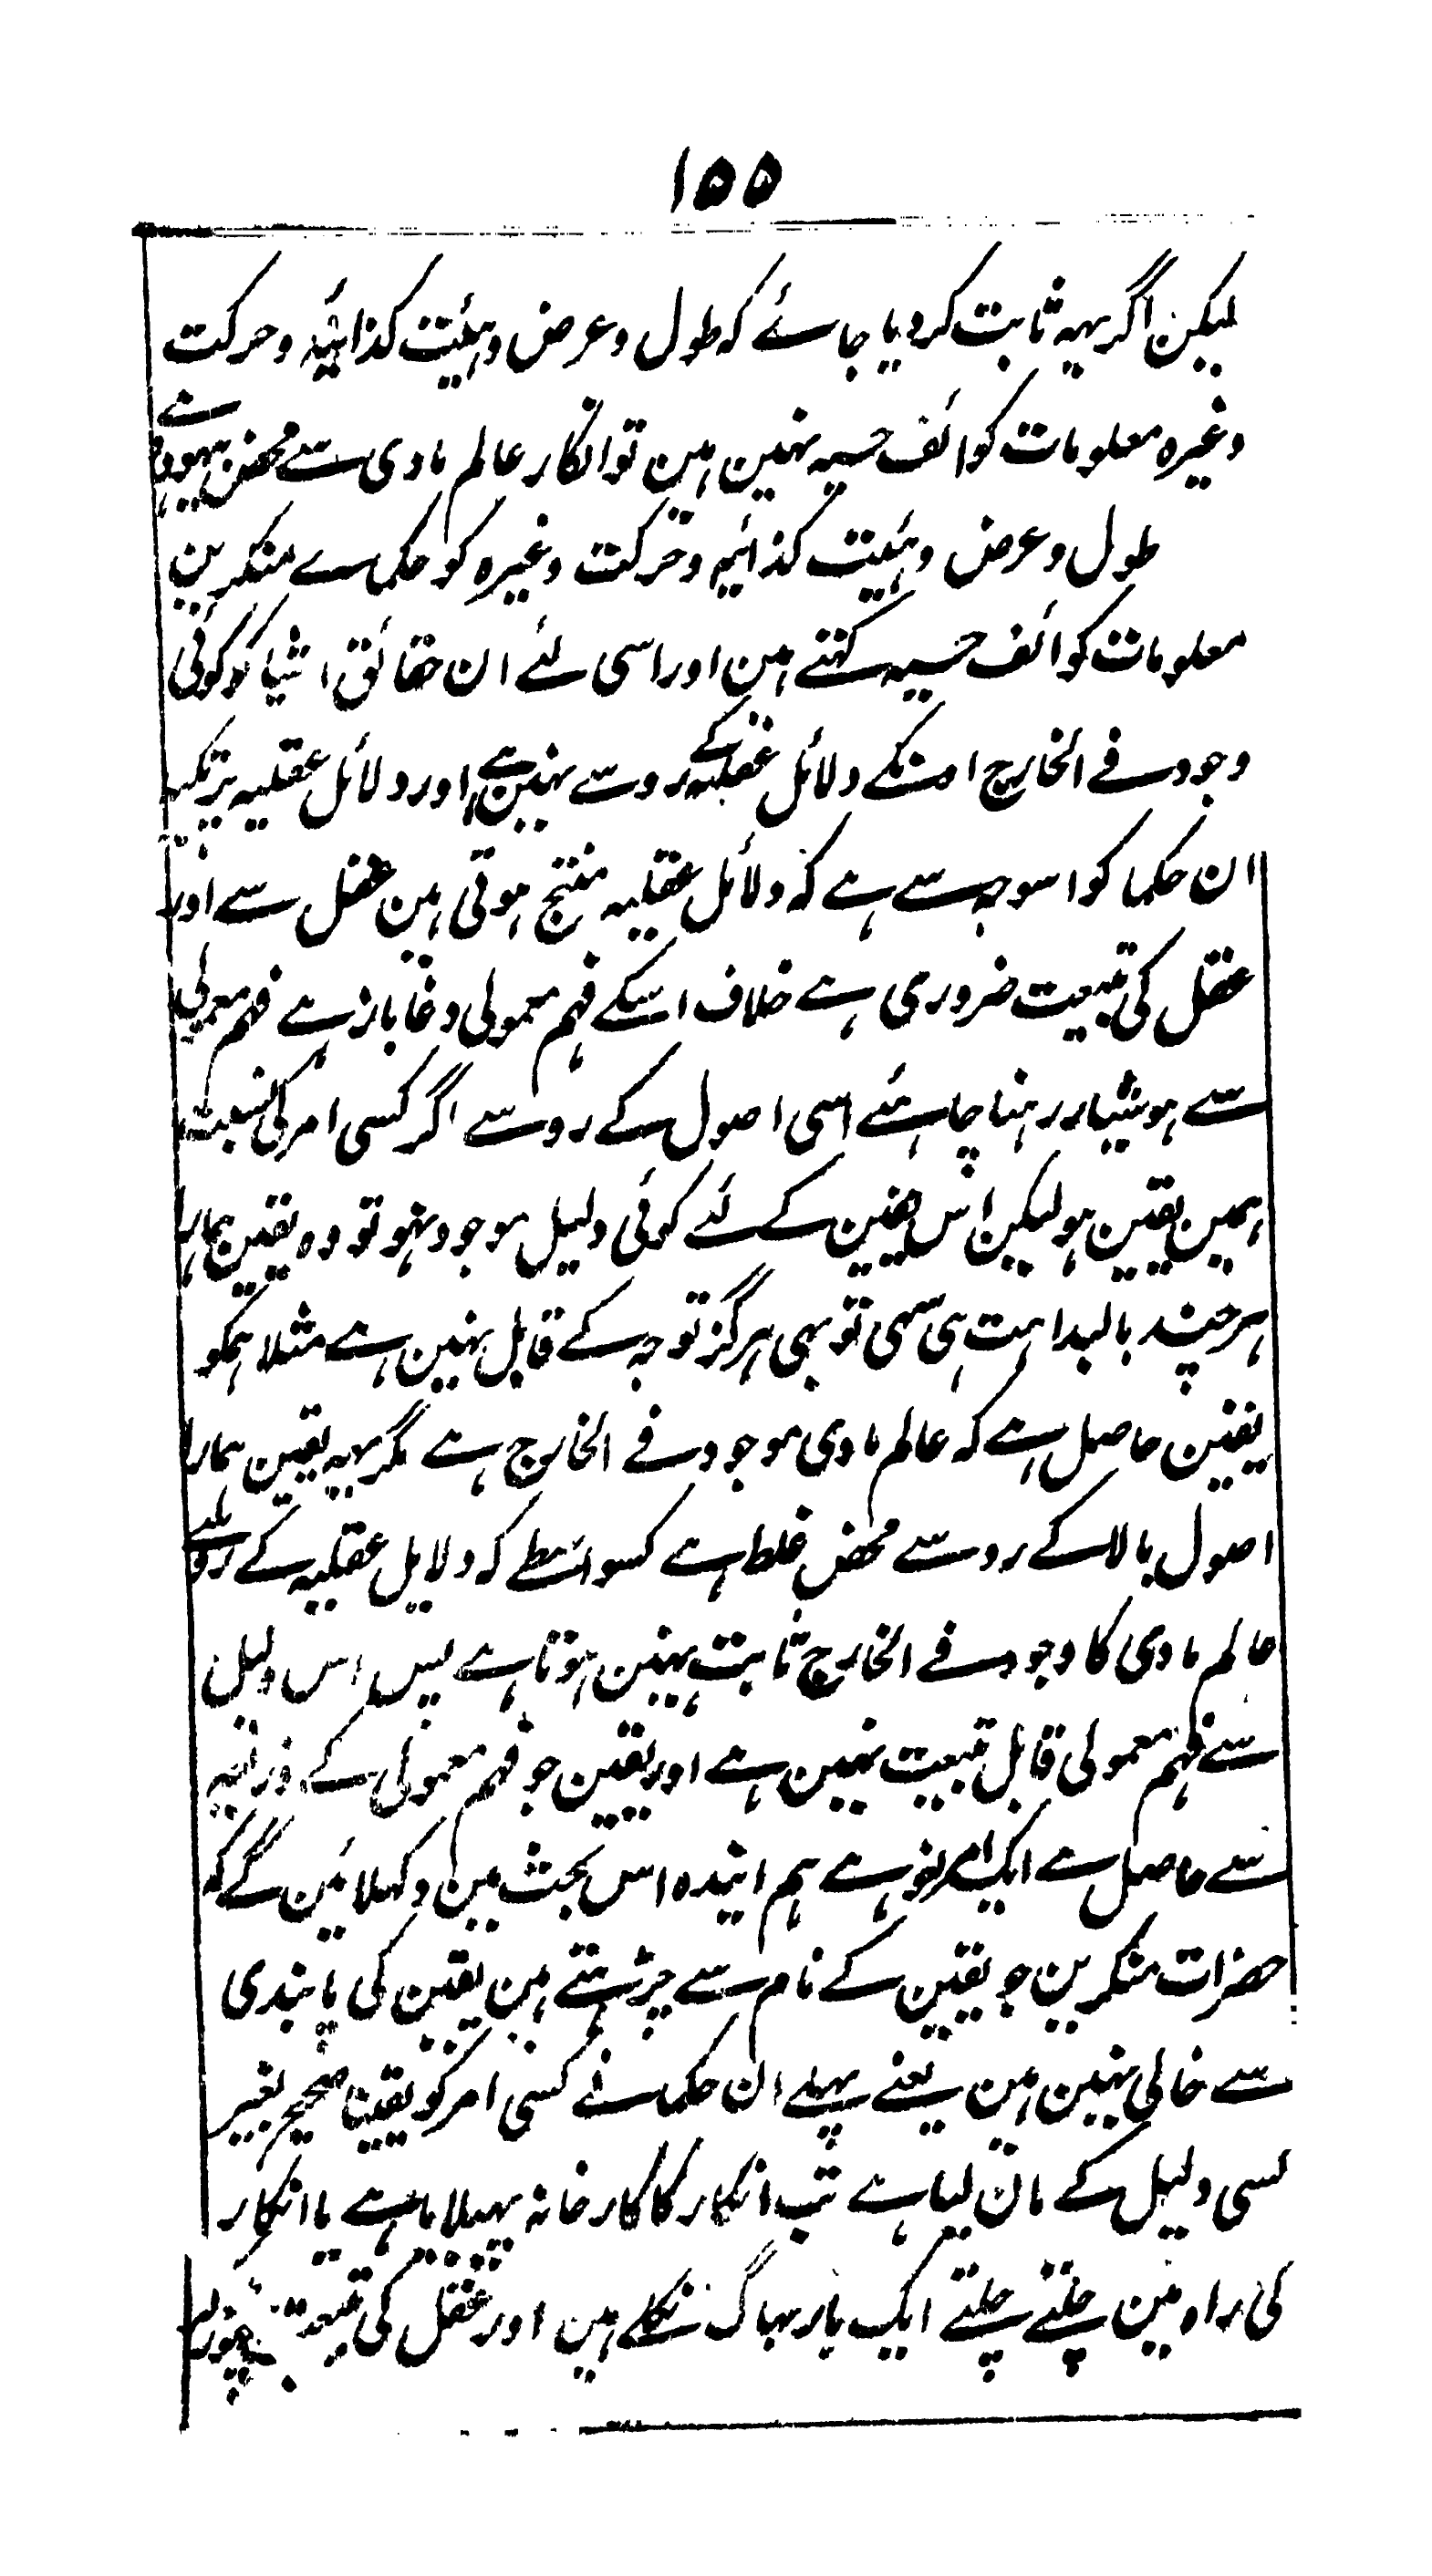 ۱۵۵
لیکن اگر یہہ ثابت کردیا جائے کہ طول و عرض و ہئیت کذائیہ و حرکت
وغیرہ معلومات کوائف حسیہ نہین ہین تو انکار عالم مادی سے محض بیہودہ ہے
طول و عرض و ہئیت کذائیہ و حرکت وغیرہ کو حکماے منکرین
معلومات کوائف حسیہ کہتے ہین اور اسی لئے ان حقائق اشیا کو کوئی
وجود فے الخارج انکے دلائل عقلیہ کے روسے نہین ہے اور دلائل عقلیہ پر تکیہ
ان حکما کو اسوجہ سے ہے کہ دلائل عقلیہ منتج ہوتی ہین عقل سے اور
عقل کی تبعیت ضروری ہے خلاف اسکے فہم معمولی دغاباز ہے فہم معمولی
سے ہوشیار رہنا چاہئے اسی اصول کے روسے اگر کسی امر کی نسبت
ہمین یقین ہو لیکن اس یقین کے لئے کوئی دلیل موجود نہو تو وہ یقین ہمارا
ہر چند بالبداہت ہی سہی تو بہی ہرگز توجہ کے قابل نہین ہے مثلا ہمکو
یقین حاصل ہے کہ عالم مادی موجود فے الخارج ہے مگر یہہ یقین ہمارا
اصول بالا کے روسے محض غلط ہے کسواسطے کہ دلایل عقلیہ کے روسے
عالم مادی کا وجود فے الخارج ثابت نہین ہوتا ہے پس اس دلیل
سے فہم معمولی قابل تبعیت نہین ہے اور یقین جو فہم معمولی کے ذریعہ
سے حاصل ہے ایک امر لغو ہے ہم ایندہ اس بحث مین دکہلائین گے کہ
حضرات منکرین جو یقین کے نام سے چڑہتے ہین یقین کی پابندی
سے خالی نہین ہین یعنے پہلے ان حکما نے کسی امر کو یقینا صحیح بغیر
کسی دلیل کے مان لیا ہے تب انکار کا کارخانہ پہیلایا ہے یا انکار
کی راہ مین چلتے چلتے ایک بار بہاگ نکلے ہین اور عقل کی تبعیت